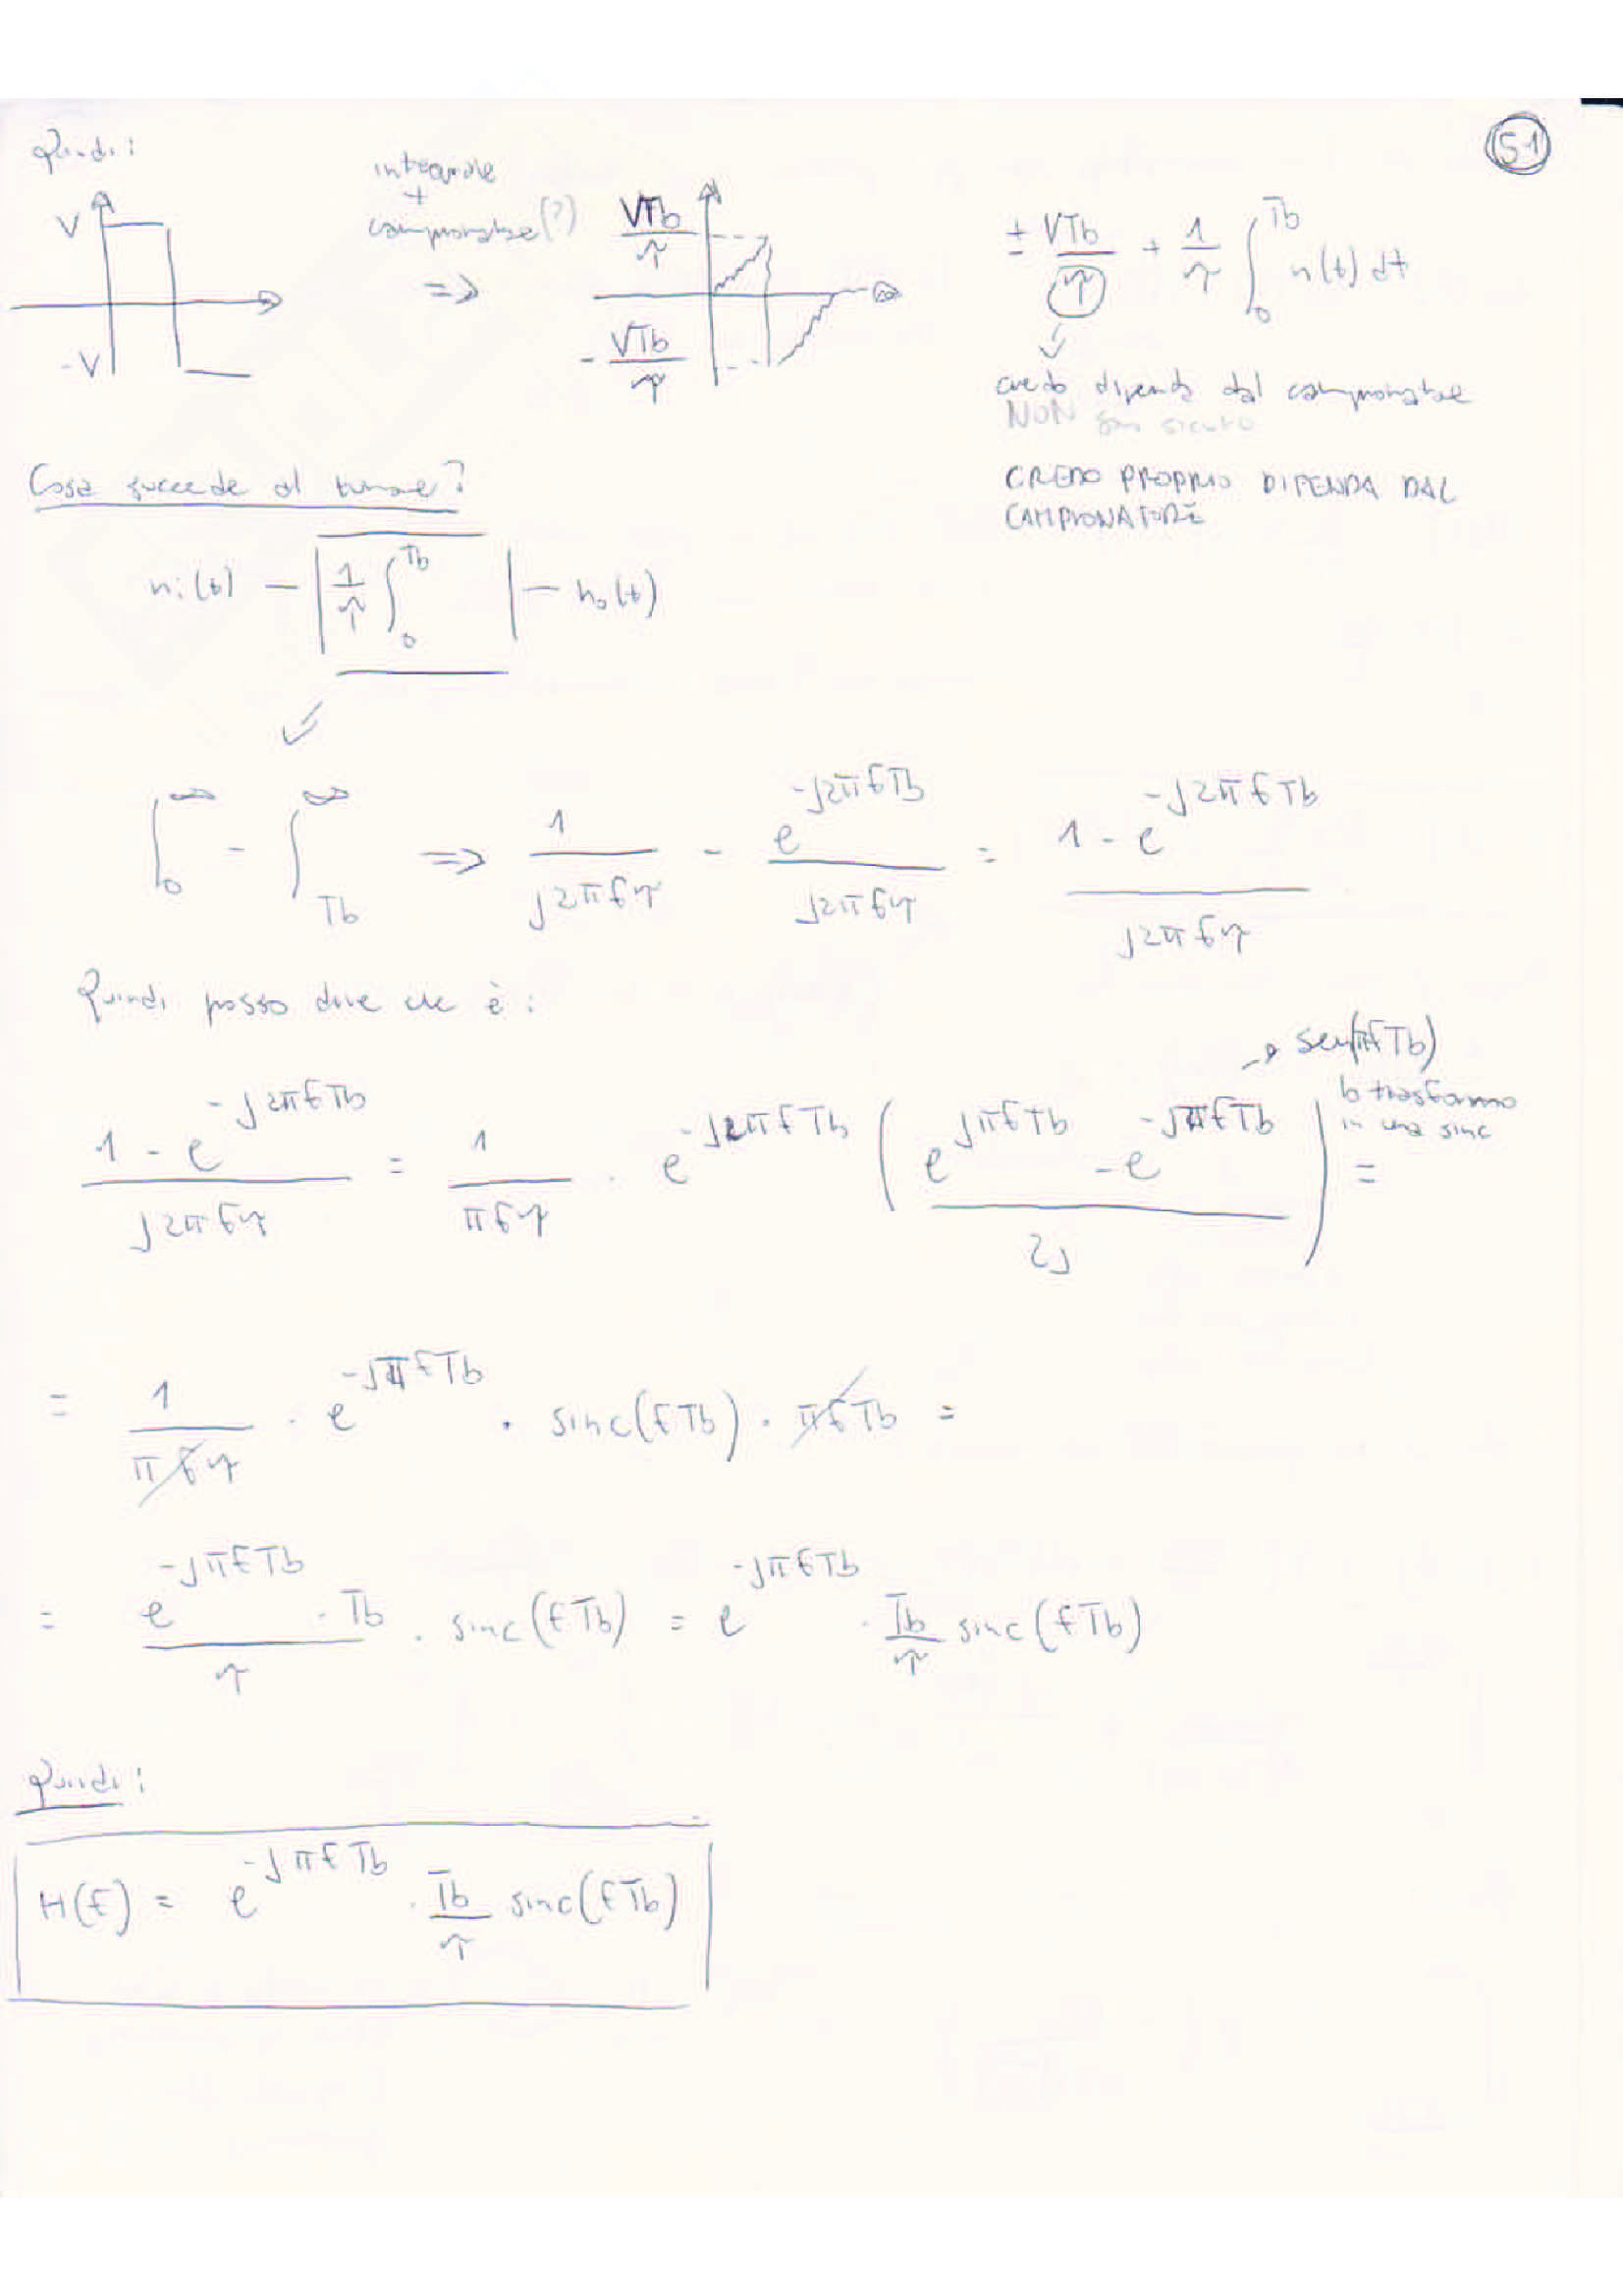 51
Quindi:
integrale
+
campionatore (?)
V
-V
=>
VTb/τ
- VTb/τ
± VTb/τ + 1/τ ∫₀^Tb n(t) dt
credo dipenda dal campionatore
NON son sicuro
CREDO PROPRIO DIPENDA DAL
CAMPIONATORE
Cosa succede al rumore?
ni(t) — | 1/τ ∫₀^Tb | — no(t)
∫₀^∞ - ∫_Tb^∞ => 1/(j2πfτ) - e^(-j2πfTb)/(j2πfτ) = (1 - e^(-j2πfTb))/(j2πfτ)
Quindi posso dire che è:
→ sen(πfTb)
lo trasformo
in una sinc
(1 - e^(-j2πfTb))/(j2πfτ) = 1/(πfτ) · e^(-jπfTb) ( (e^(jπfTb) - e^(-jπfTb))/2j ) =
= 1/(πfτ) · e^(-jπfTb) · sinc(fTb) · πfTb =
= (e^(-jπfTb) · Tb)/τ · sinc(fTb) = e^(-jπfTb) · Tb/τ sinc(fTb)
Quindi:
H(f) = e^(-jπfTb) · Tb/τ sinc(fTb)